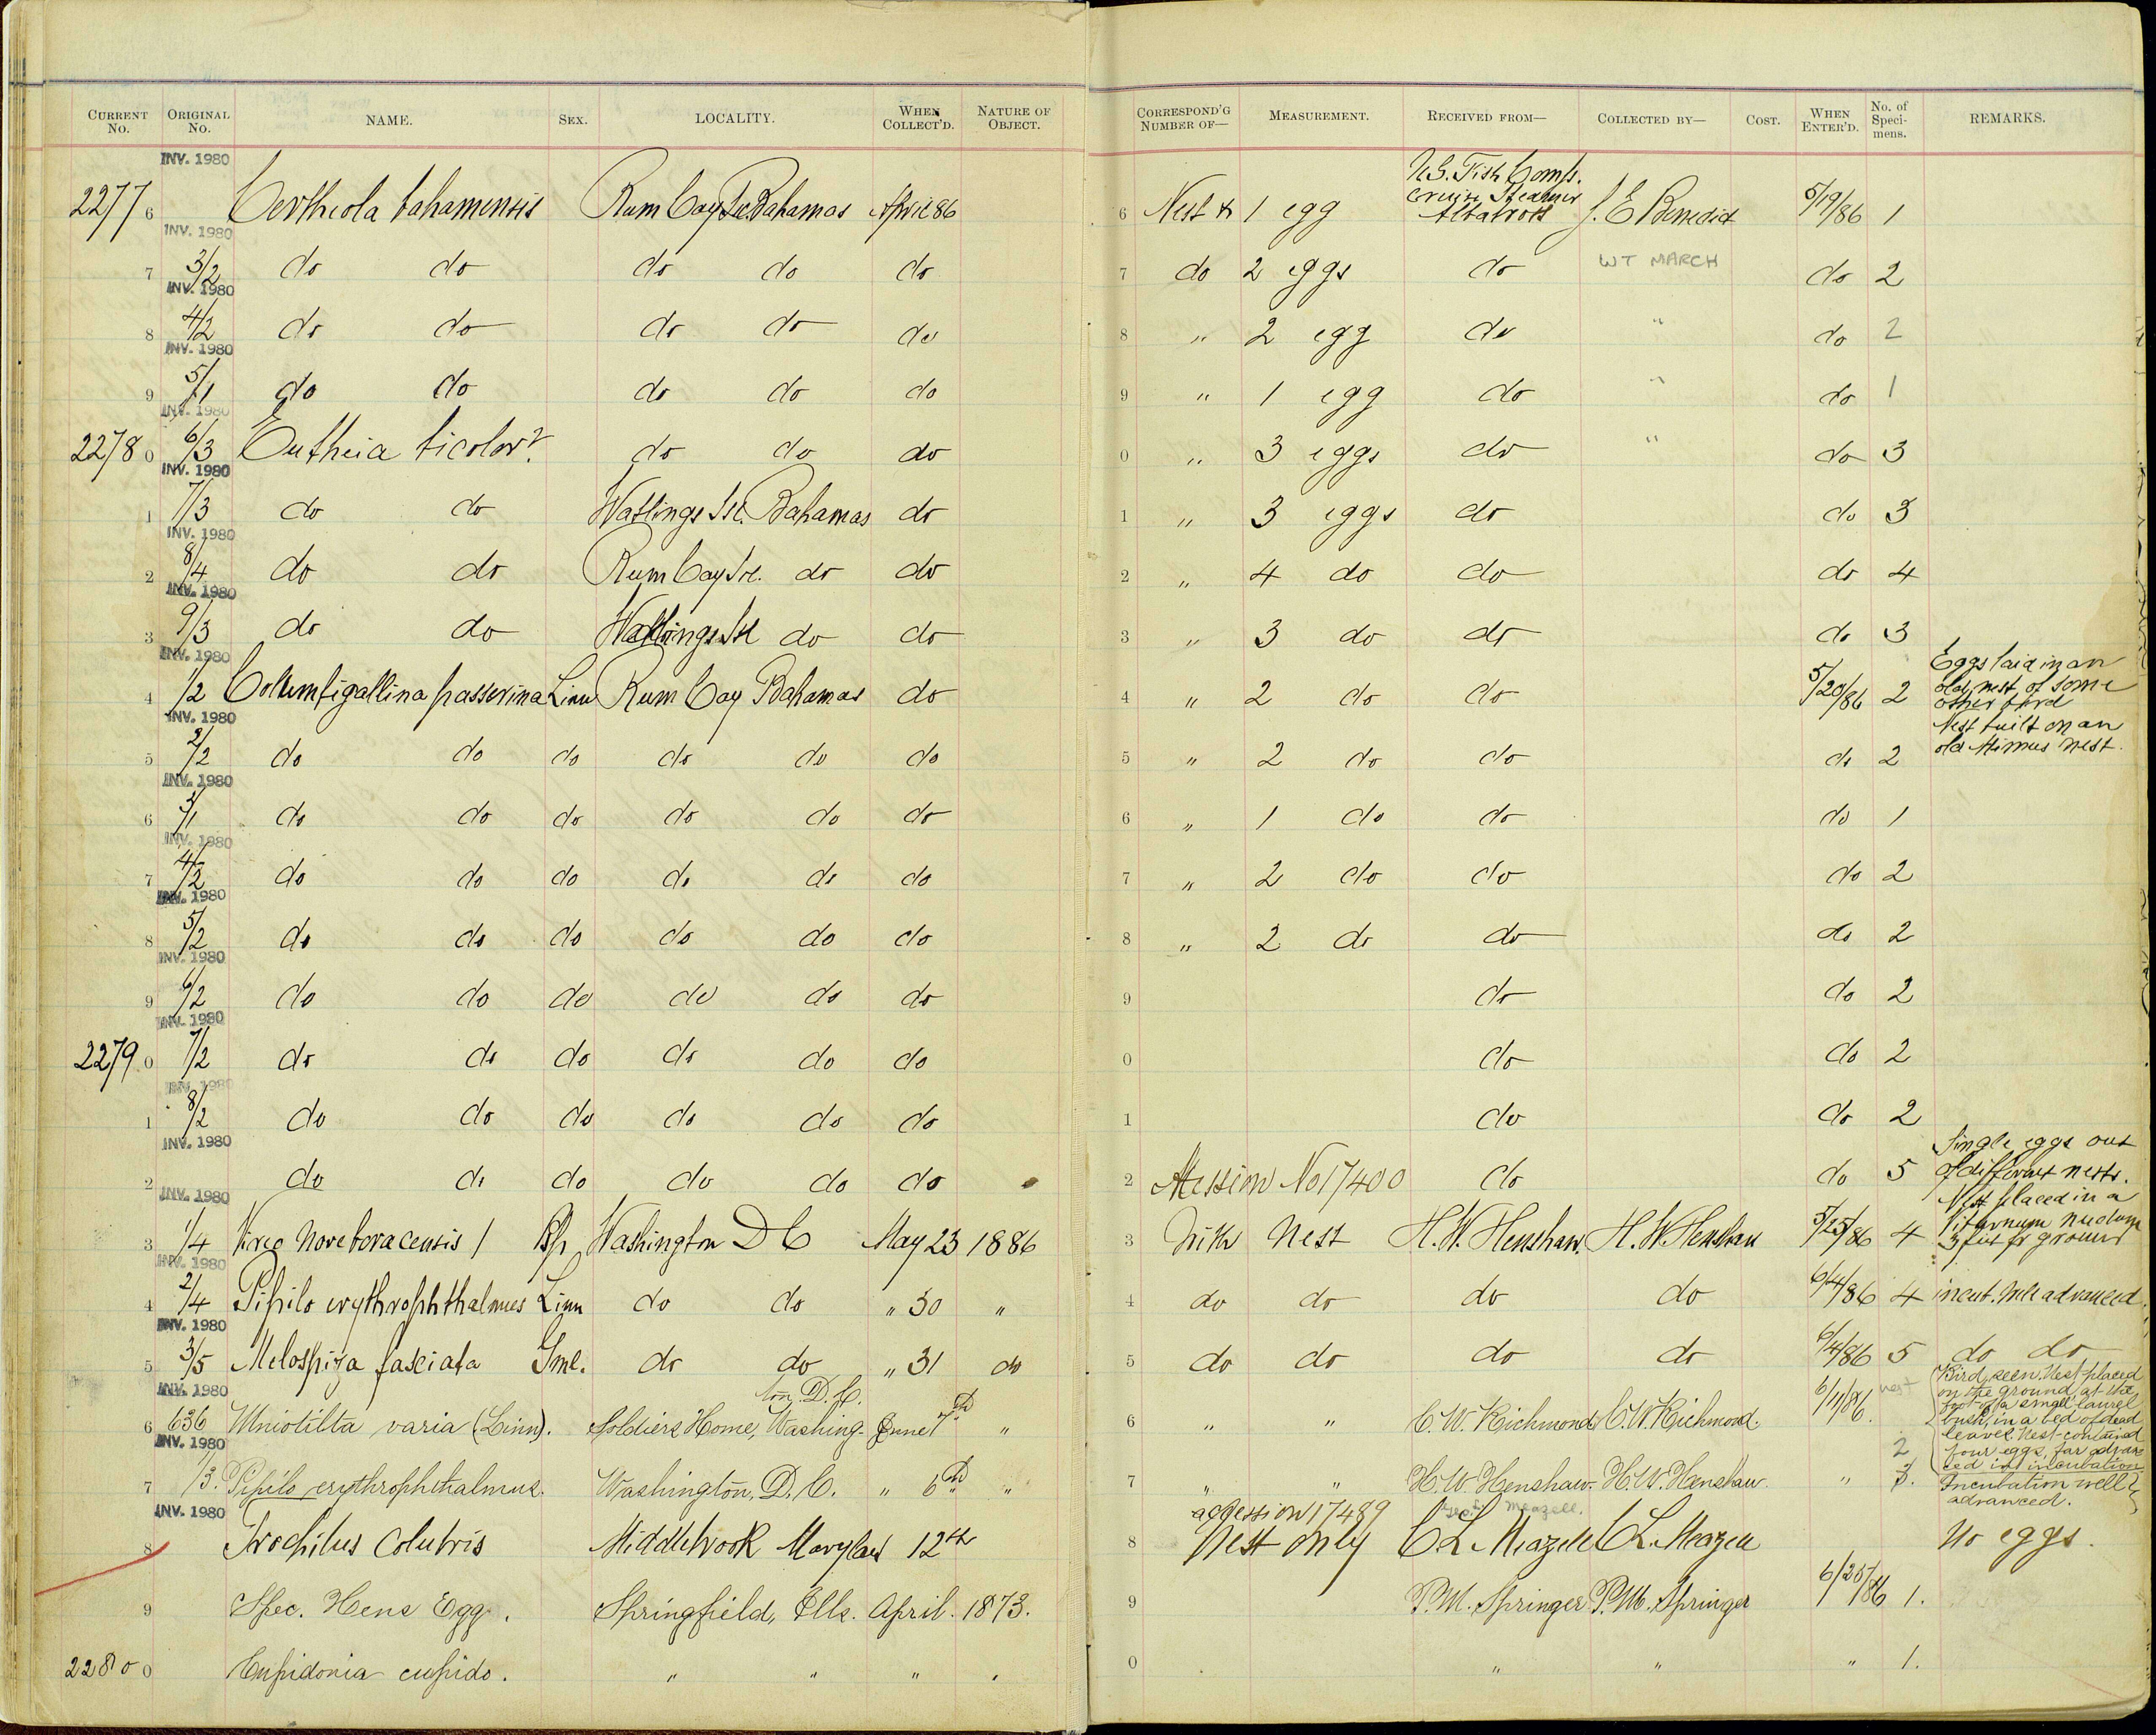 CURRENT No. ORIGINAL No. NAME. SEX. LOCALITY. WHEN COLLECT'D. NATURE OF OBJECT. CORRESPOND'G NUMBER OF— MEASUREMENT. RECEIVED FROM— COLLECTED BY— COST. WHEN ENTER'D. No. of Speci-mens. REMARKS.
INV. 1980
U.S. Fish Comss.
cruise Steamer
2277 6 Certhiola bahamensis Rum Cay Isl. Bahamas April 86 6 Nest & 1 egg Albatross J. E Benedict 5/19/86 1
INV. 1980
7 3/2 do do do do do 7 do 2 eggs do WT MARCH do 2
INV. 1980
8 4/2 do do do do do 8 " 2 egg do " do 2
INV. 1980
9 5/1 do do do do do 9 " 1 egg do " do 1
INV. 1980
2278 0 6/3 Eutheia bicolor? do do do 0 " 3 eggs do " do 3
INV. 1980
1 7/3 do do Watlings Isl. Bahamas do 1 " 3 eggs do do 3
INV. 1980
2 8/4 do do Rum Cay Isl. do do 2 " 4 do do do 4
INV. 1980
3 9/3 do do Watlings Isl do do 3 " 3 do do do 3
INV. 1980
4 1/2 Columbigallina passerina Linn Rum Cay Bahamas do 4 " 2 do do 5/20/86 2 Eggs laid in an
old nest of some
other bird
INV. 1980
5 2/2 do do do do do do 5 " 2 do do do 2 Nest built on an
old Mimus nest.
INV. 1980
6 3/1 do do do do do do 6 " 1 do do do 1
INV. 1980
7 4/2 do do do do do do 7 " 2 do do do 2
INV. 1980
8 5/2 do do do do do do 8 " 2 do do do 2
INV. 1980
9 6/2 do do do do do do 9 do do 2
INV. 1980
2279 0 7/2 do do do do do do 0 do do 2
INV. 1980
1 8/2 do do do do do do 1 do do 2
INV. 1980
2 do do do do do do 2 Accession No 17400 do do 5 Single eggs out
of different nests.
INV. 1980
3 1/4 Vireo noveboracensis Washington D C May 23 1886 3 With Nest H. W. Henshaw. H. W. Henshaw 5/25/86 4 Nest placed in a
Viburnum nudum
3 feet fr ground
INV. 1980
4 2/4 Pipilo erythrophthalmus Linn do do " 30 " 4 do do do do 6/4/86 4 incub. well advanced
INV. 1980
5 3/5 Melospiza fasciata Gml. do do " 31 do 5 do do do do 6/4/86 5 do do
INV. 1980
ton, D. C.
6 636 Mniotilta varia (Linn). Soldiers Home, Washing- June 7th " 6 " " C. W. Richmond C. W. Richmond. 6/11/86. nest Bird seen. Nest placed
on the ground, at the
foot of a small laurel
bush, in a bed of dead
leaves. Nest contained
four eggs, far advan-
ced in incubation
INV. 1980
7 1/3. Pipilo erythrophthalmus. Washington, D. C. " 6th " 7 " " H. W. Henshaw. H. W. Henshaw. " 2 3. Incubation well
advanced.
INV. 1980
accession 17489
Meazell.
8 Trochilus Colubris Middlebrook Maryland 12th 8 Nest only C L Meazell C L. Meazell No eggs.
9 Spec. Hens Egg. Springfield, Ills. April. 1873. 9 P. M. Springer P. M. Springer 6/25/86 1.
2280 0 Cupidonia cupido. " " " " 0 " " " 1.